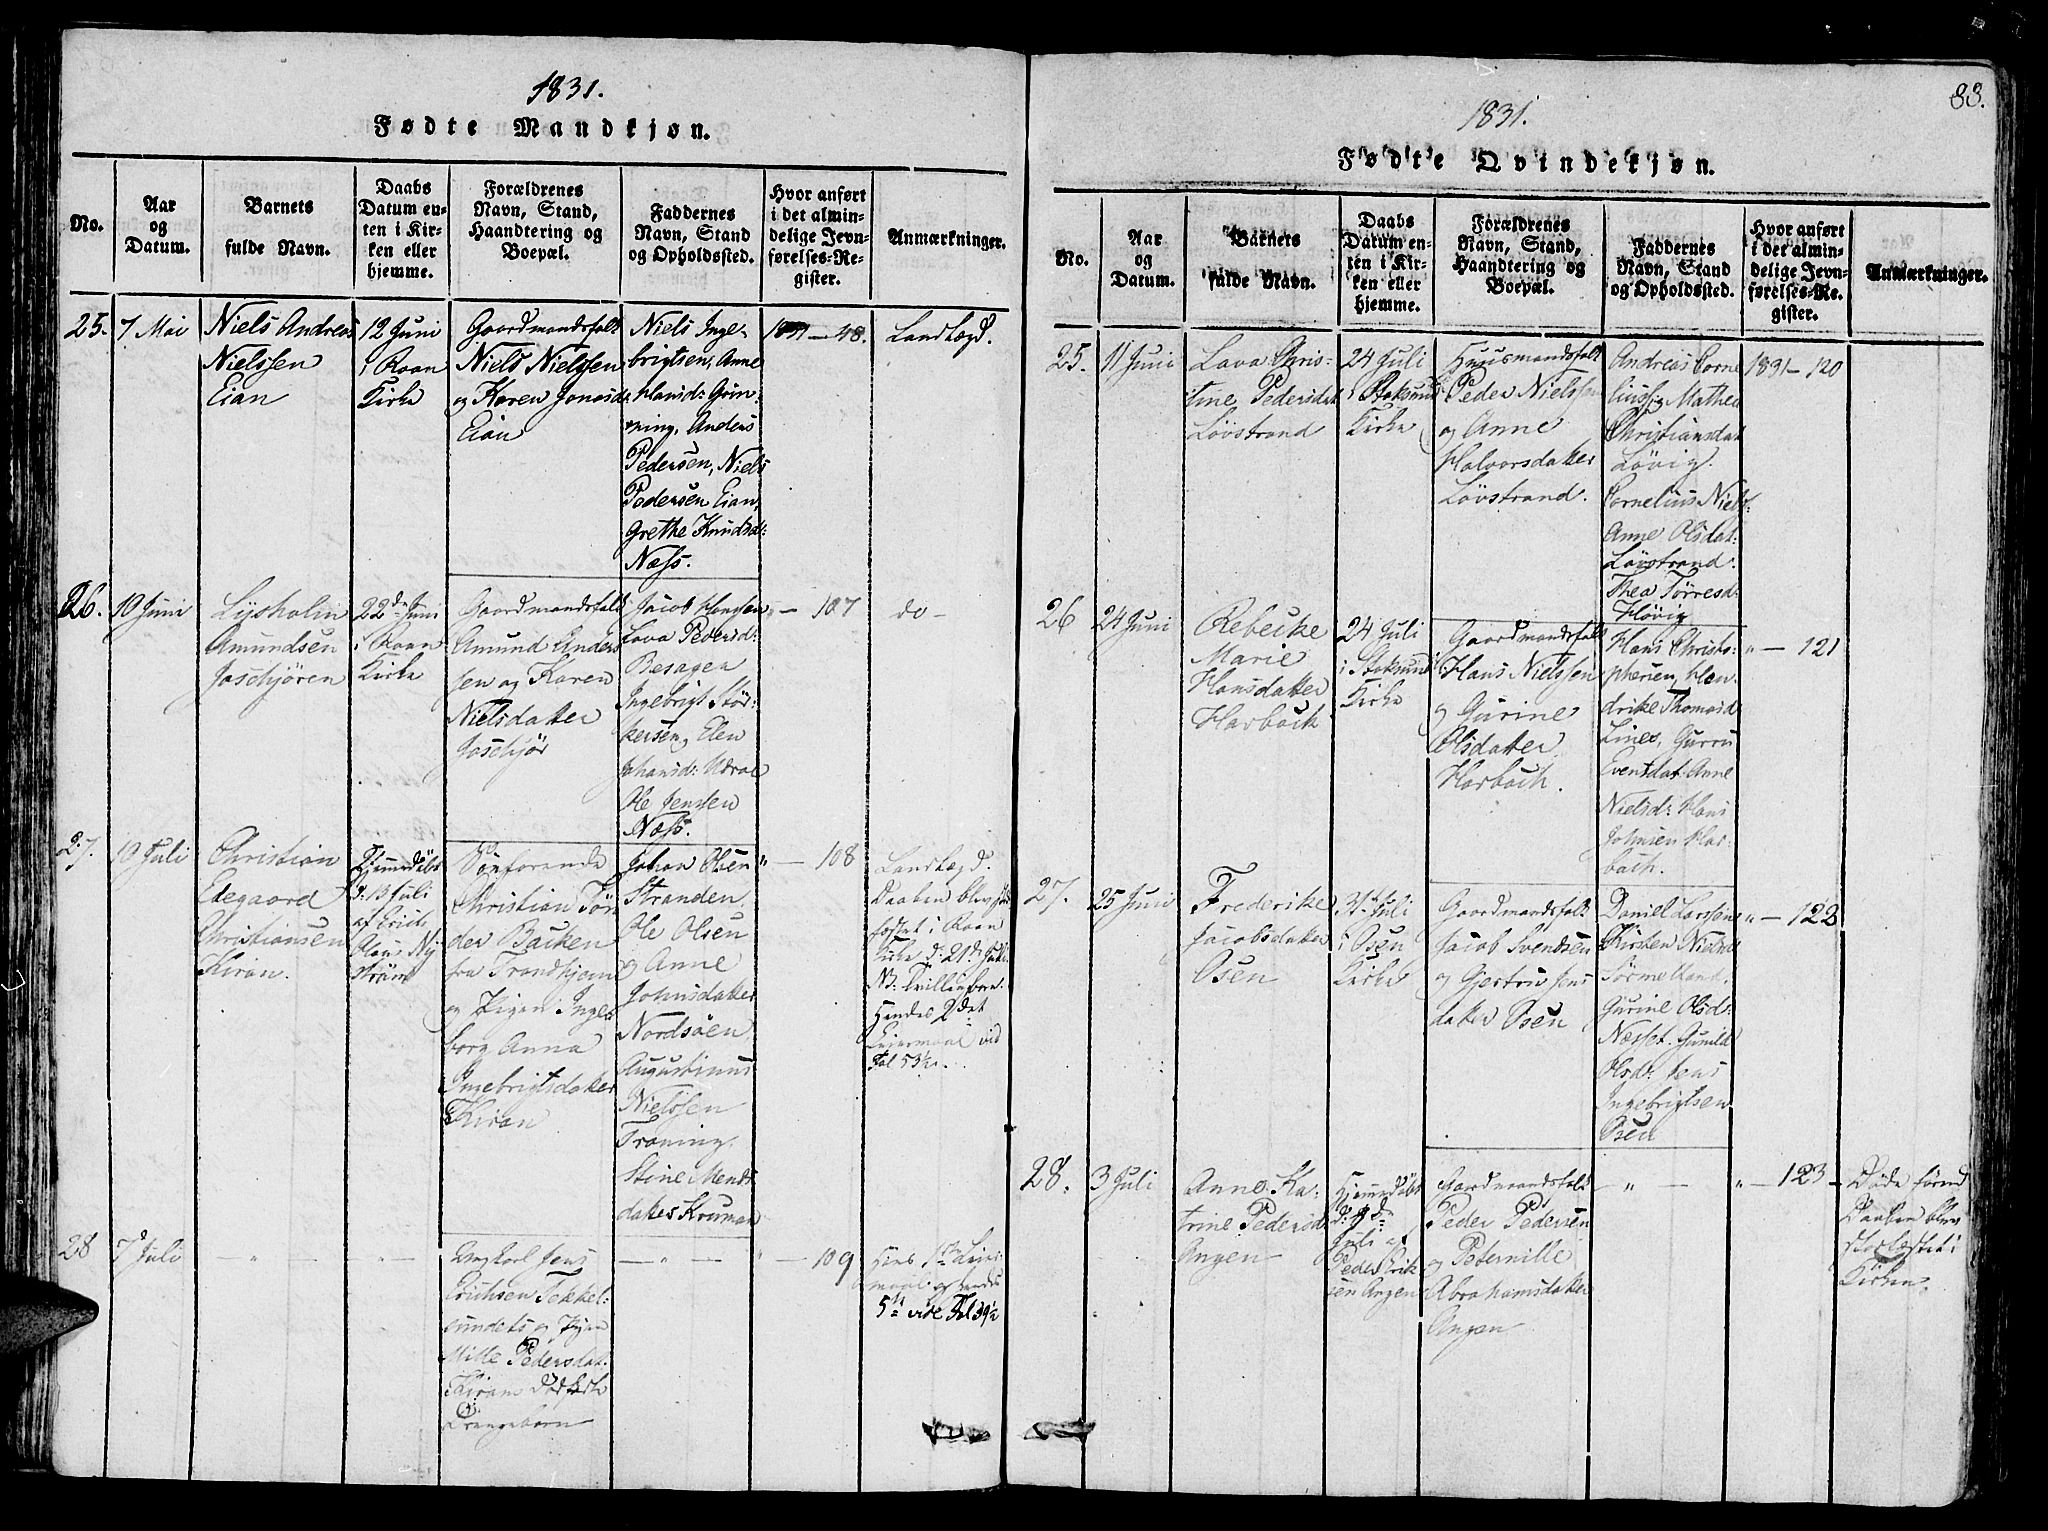 1831.
Fødte Mandkjøn.
No.
Aar
og
Datum.
Barnets
fulde Navn.
Daabs
Datum en-
ten i Kir-
ken eller
hjemme.
Forældrenes
Navn, Stand,
Haandtering og
Boepæl.
Faddernes
Navn, Stand
og Opholdssted.
Hvor anført
i det almin-
delige Jevn-
førelses-Re-
gister.
Anmærkninger.
25.
7 Mai
Niels Andreas
Nielssen
Eian
12 Juni
i Roan
Kirke
Gaardmandsfolk
Niels Nielssen
og Karen Jonasd:
Eian
Niels Inge-
brigtsen, Anne
Hansd: Grin-
ning, Anders
Pedersen, Niels
Pedersen Eian,
Grethe Knudsd:
Næss.
1831 — 48.
Landlægd.
26.
10 Juni
Lysholm
Amundsen
Joschjören
22de Juni
i Roan
Kirke
Gaardmandsfolk
Amund Anders
sen og Karen
Nielsdatter
Joschjör
Jacob Hanssen
Lava Pedersd:
Besagen
Ingebrigt Stör-
kersen, Elen
Johansd: Utroe
Ole Jenssen
Næss.
" — 107
do —
27.
10 Juli
Christian
Edegaard
Christiansen
Kiran.
Hjemmedöbt
d: 13 Juli
af
Olaus Ny
ström
Christian Tön
der Backen
fra Trondhjem
og Pigen Inge
borg Anna
Ingebrigtsdatter
Kiran
Johan Olsen
Stranden,
Ole Olsen
og Anne
Johnsdatter
Nordsöen,
Augustinus
Nielssen
Troning,
Stine Mends
datter Kruman
" — 108
Landlægd.
Daaben blev stad
fæstet i Roan
Kirke d: 21d Juli.
NB: Tvillingborn.
Hendes 2det
Leiermaal vid
Fol 53½.
28
7 Juli
— " —
Ungkarl Jens
Erichsen Tokkel-
sundets og Pigen
Mille Pedersdat.
Kirans Dödfødte
Drengebarn
— " —
" — 109
Hans 1te Leier
maal og hendes
5te vide Fol 39½
83.
1831.
Fødte Qvindekjøn.
No.
Aar
og
Datum.
Barnets
fulde Navn.
Daabs
Datum en-
ten i Kir-
ken eller
hjemme.
Forældrenes
Navn, Stand,
Haandtering og
Boepæl.
Faddernes
Navn, Stand
og Opholdssted.
Hvor anført
i det almin-
delige Jevn-
førelses-Re-
gister.
Anmærkninger.
25.
11 Juni
Lava Chris-
tine Pedersdat
Lövstrand
24 Juli
i Stoksund
Kirke
Huusmandsfolk
Peder Nielssen
og Anne
Halvorsdatter
Lövstrand.
Andreas Corne
liuss, Mathea
Christiansdat
Lövig.
Cornelius Niels:
Anne Olsdat:
Lövstrand.
Thea Törresd:
Hövig
1831 — 120
26
24 Juni
Rebecke
Marie
Hansdatter
Harbach
24 Juli
i Stoksund
Kirke
Gaardmandsfolk
Hans Nielssen
og Gurine
Olsdatter
Harbach.
Hans Christo-
phersen, Hen-
drike Thomasd
Lines, Gurru
Eventdat: Anne
Nielsd: Hans
Johnsen Har-
bach.
" — 121
27.
25 Juni
Frederike
Jacobsdatter
Osen
31te Juli
i Osen
Kirke
Gaardmandsfolk
Jacob Svendsen
og Gjertru Jens
datter Osen
Daniel Larssen
Kirsten Nielsd
Sörmelland,
Gurine Olsd:
Næsset. Gunild
Olsd: Jens
Ingebrigtsen
Osen
" — 122
28.
3 Juli
Anne Ka-
trine Pedersd
Angen
Hjemmedöbt
d: 4de
Juli af
Peder Erik
sen Angen
Gaardmandsfolk
Peder Pedersen
og Peternille
Abrahamsdatter
Angen
— " —
" — 123
Döde förend
Daaben blev
stadfæstet i
Kirken.